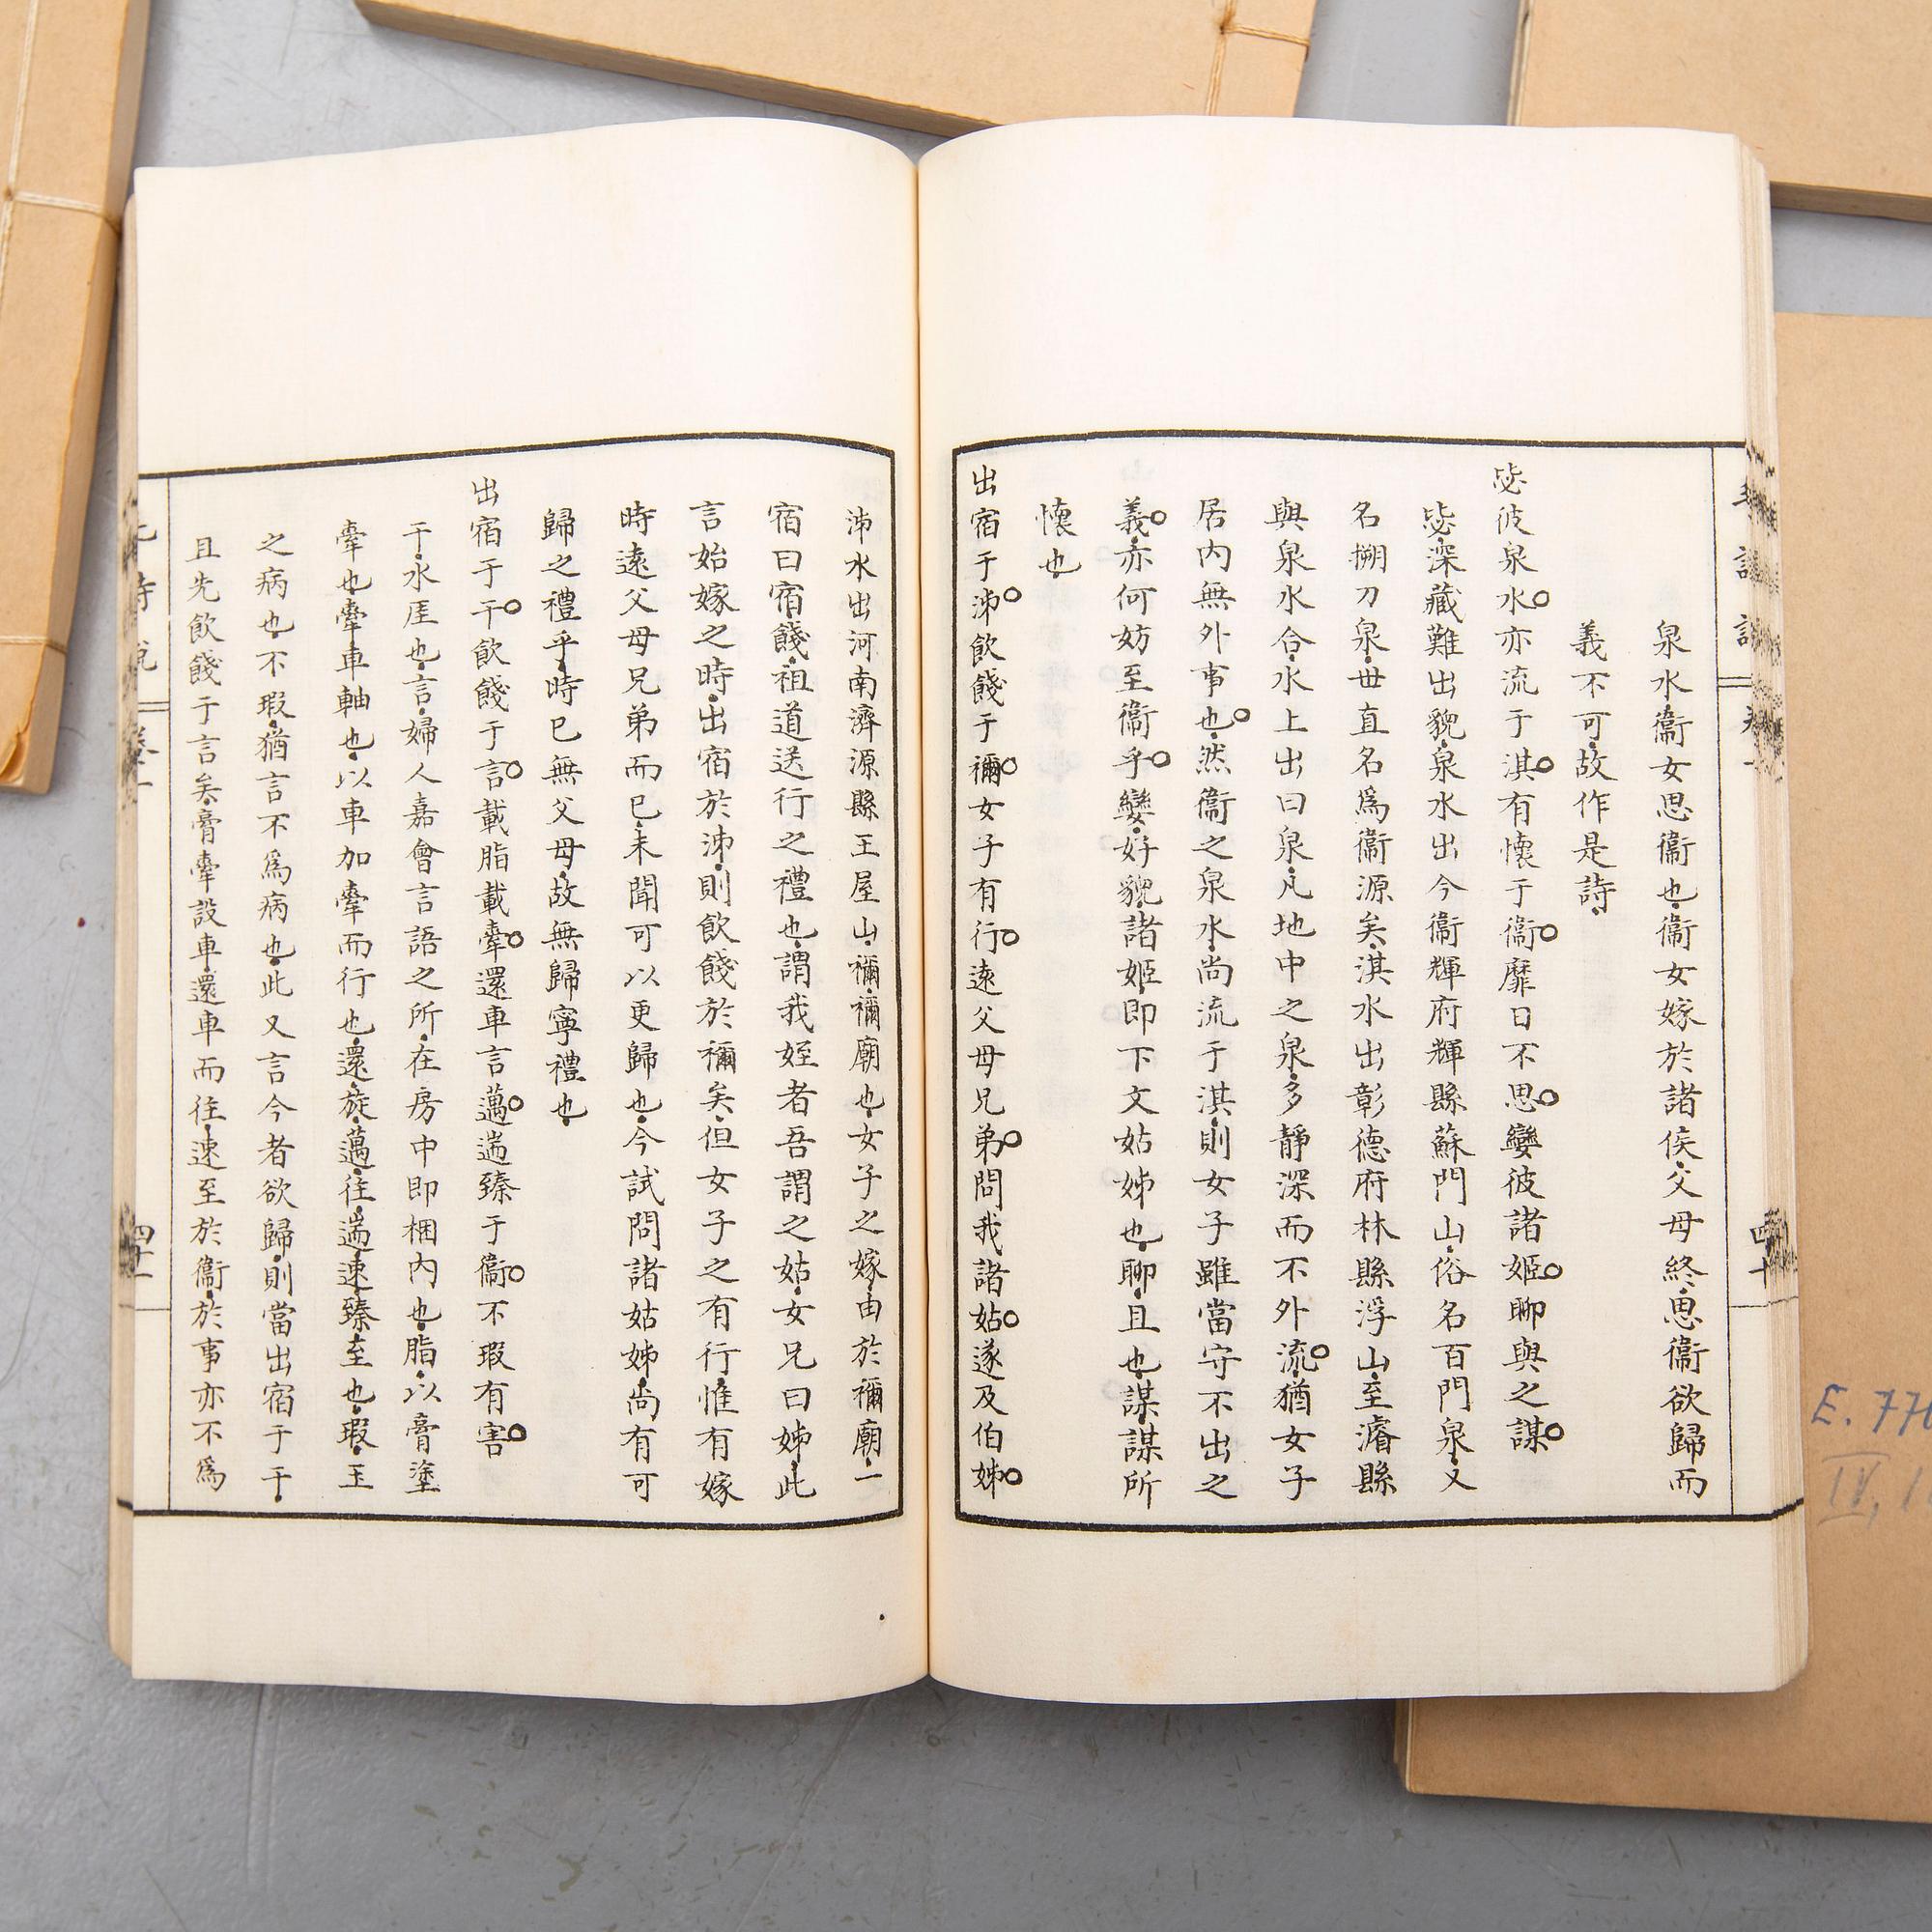 泉水衞女思衞也衞女嫁於諸侯父母終思衞欲歸而
義不可故作是詩
毖彼泉水亦流于淇有懷于衞靡日不思孌彼諸姬聊與之謀
毖深藏難出貌泉水出今衞輝府輝縣蘇門山俗名百門泉又
名搠刀泉世直名爲衞源矣淇水出彰德府林縣浮山至濬縣
與泉水合水上出曰泉凡地中之泉多靜深而不外流猶女子
居内無外事也然衞之泉水尚流于淇則女子雖當守不出之
義亦何妨至衞乎孌好貌諸姬即下文姑姊也聊且也謀謀所
懷也
出宿于泲飲餞于禰女子有行遠父母兄弟問我諸姑遂及伯姊
泲水出河南濟源縣王屋山禰禰廟也女子之嫁由於禰廟一
宿曰宿餞祖道送行之禮也謂我姪者吾謂之姑女兄曰姊此
言始嫁之時出宿於泲則飲餞於禰矣但女子之有行惟有嫁
時遠父母兄弟而已未聞可以更歸也今試問諸姑姊尚有可
歸之禮乎時已無父母故無歸寧禮也
出宿于干飲餞于言載脂載舝還車言邁遄臻于衞不瑕有害
干水厓也言婦人嘉會言語之所在房中即梱内也脂以膏塗
舝也舝車軸也以車加舝而行也還旋邁往遄速臻至也瑕玉
之病也不瑕猶言不爲病也此又言今者欲歸則當出宿于干
且先飲餞于言矣膏舝設車還車而往速至於衞於事亦不爲